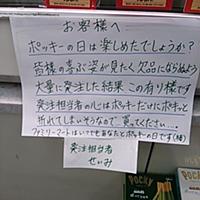 お客様へ
ポッキーの日は楽しめたでしょうか？
皆様の喜ぶ姿が見たく欠品にならぬよう
大量に発注した結果 この有り様です
発注担当者の心はポッキーだけにポキッと
折れてしまいそうなので 買ってください……
ファミリーマートはいつでもあなたとポッキーの日です(棒)
発注担当者
せいみ
POCKY